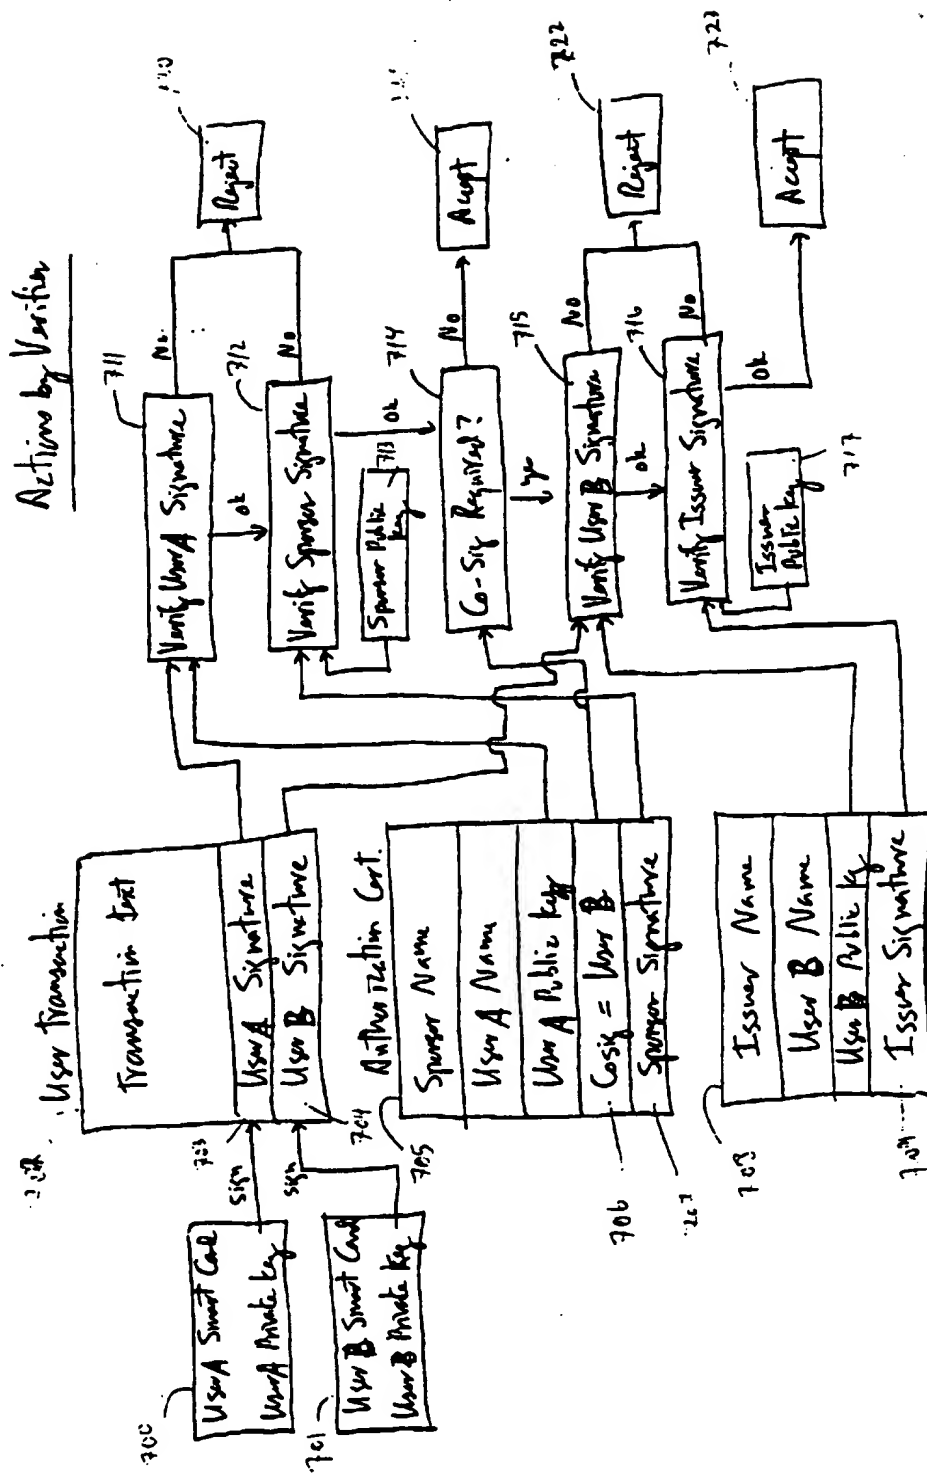 Actions by Verifier
User Transaction
Transaction text
User A Signature
User B Signature
703
704
User A Smart Card
User A Private key
700
sign
User B Smart Card
User B Private key
701
sign
Authorization Cert.
Sponsor Name
User A Name
User A Public key
Cosig = User B
Sponsor Signature
705
706
Issuer Name
User B Name
User B Public key
Issuer Signature
708
709
Verify User A Signature
711
No
ok
Verify Sponsor Signature
712
No
ok
Sponsor Public
key
713
Co-Sig Required?
714
No
yes
Verify User B Signature
715
No
ok
Verify Issuer Signature
716
No
ok
Issuer
Public key
717
Reject
Accept
Reject
722
Accept
723